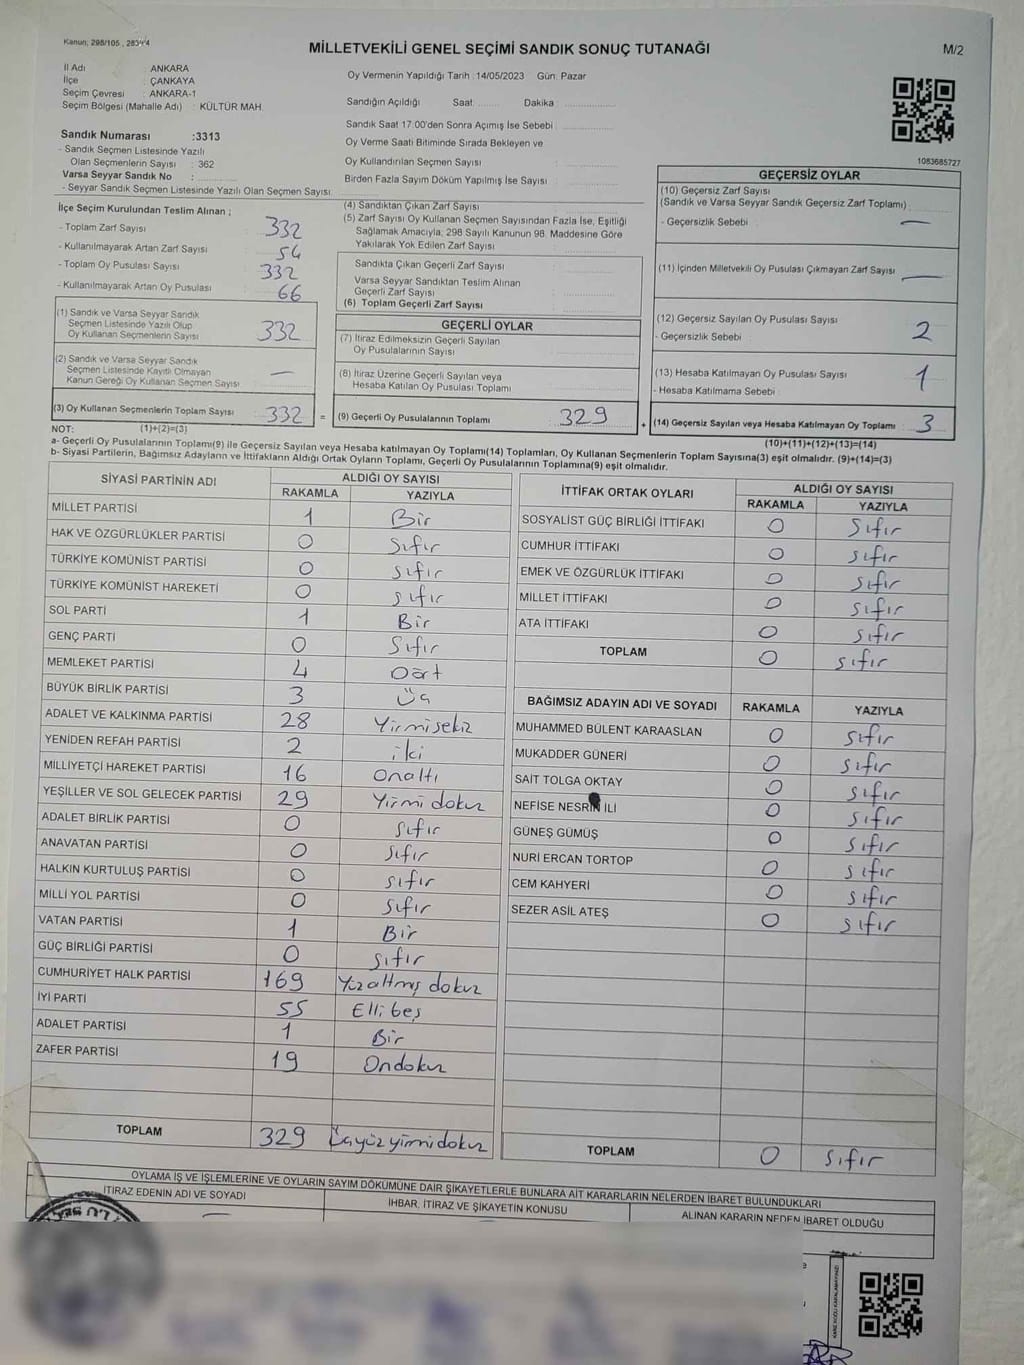 Kanun: 298/105 , 2839/4
MİLLETVEKİLİ GENEL SEÇİMİ SANDIK SONUÇ TUTANAĞI
M/2
İl Adı : ANKARA
İlçe : ÇANKAYA
Seçim Çevresi : ANKARA-1
Seçim Bölgesi (Mahalle Adı) : KÜLTÜR MAH.
Sandık Numarası :3313
- Sandık Seçmen Listesinde Yazılı
Olan Seçmenlerin Sayısı : 362
Varsa Seyyar Sandık No :
- Seyyar Sandık Seçmen Listesinde Yazılı Olan Seçmen Sayısı:
Oy Vermenin Yapıldığı Tarih : 14/05/2023 Gün: Pazar
Sandığın Açıldığı Saat: Dakika :
Sandık Saat 17:00'den Sonra Açımış İse Sebebi :
Oy Verme Saati Bitiminde Sırada Bekleyen ve
Oy Kullandırılan Seçmen Sayısı :
Birden Fazla Sayım Döküm Yapılmış İse Sayısı :
1083685727
İlçe Seçim Kurulundan Teslim Alınan ;
- Toplam Zarf Sayısı : 332
- Kullanılmayarak Artan Zarf Sayısı : 54
- Toplam Oy Pusulası Sayısı : 332
- Kullanılmayarak Artan Oy Pusulası : 66
(1) Sandık ve Varsa Seyyar Sandık
Seçmen Listesinde Yazılı Olup
Oy Kullanan Seçmenlerin Sayısı : 332
(2) Sandık ve Varsa Seyyar Sandık
Seçmen Listesinde Kayıtlı Olmayan
Kanun Gereği Oy Kullanan Seçmen Sayısı : —
(3) Oy Kullanan Seçmenlerin Toplam Sayısı : 332 =
(4) Sandıktan Çıkan Zarf Sayısı :
(5) Zarf Sayısı Oy Kullanan Seçmen Sayısından Fazla İse, Eşitliği
Sağlamak Amacıyla; 298 Sayılı Kanunun 98. Maddesine Göre
Yakılarak Yok Edilen Zarf Sayısı :
Sandıkta Çıkan Geçerli Zarf Sayısı :
Varsa Seyyar Sandıktan Teslim Alınan
Geçerli Zarf Sayısı :
(6) Toplam Geçerli Zarf Sayısı :
GEÇERLİ OYLAR
(7) İtiraz Edilmeksizin Geçerli Sayılan
Oy Pusulalarının Sayısı :
(8) İtiraz Üzerine Geçerli Sayılan veya
Hesaba Katılan Oy Pusulası Toplamı :
(9) Geçerli Oy Pusulalarının Toplamı : 329 +
GEÇERSİZ OYLAR
(10) Geçersiz Zarf Sayısı
(Sandık ve Varsa Seyyar Sandık Geçersiz Zarf Toplamı) :
- Geçersizlik Sebebi : —
(11) İçinden Milletvekili Oy Pusulası Çıkmayan Zarf Sayısı : —
(12) Geçersiz Sayılan Oy Pusulası Sayısı : 2
- Geçersizlik Sebebi :
(13) Hesaba Katılmayan Oy Pusulası Sayısı : 1
- Hesaba Katılmama Sebebi :
(14) Geçersiz Sayılan veya Hesaba Katılmayan Oy Toplamı : 3
NOT: (1)+(2)=(3)
(10)+(11)+(12)+(13)=(14)
a- Geçerli Oy Pusulalarının Toplamı(9) ile Geçersiz Sayılan veya Hesaba katılmayan Oy Toplamı(14) Toplamları, Oy Kullanan Seçmenlerin Toplam Sayısına(3) eşit olmalıdır. (9)+(14)=(3)
b- Siyasi Partilerin, Bağımsız Adayların ve İttifakların Aldığı Ortak Oyların Toplamı, Geçerli Oy Pusulalarının Toplamına(9) eşit olmalıdır.
SİYASİ PARTİNİN ADI ALDIĞI OY SAYISI
RAKAMLA YAZIYLA
MİLLET PARTİSİ 1 Bir
HAK VE ÖZGÜRLÜKLER PARTİSİ 0 Sıfır
TÜRKİYE KOMÜNİST PARTİSİ 0 Sıfır
TÜRKİYE KOMÜNİST HAREKETİ 0 Sıfır
SOL PARTİ 1 Bir
GENÇ PARTİ 0 Sıfır
MEMLEKET PARTİSİ 4 Dört
BÜYÜK BİRLİK PARTİSİ 3 Üç
ADALET VE KALKINMA PARTİSİ 28 Yirmisekiz
YENİDEN REFAH PARTİSİ 2 iki
MİLLİYETÇİ HAREKET PARTİSİ 16 Onaltı
YEŞİLLER VE SOL GELECEK PARTİSİ 29 Yirmi dokuz
ADALET BİRLİK PARTİSİ 0 Sıfır
ANAVATAN PARTİSİ 0 Sıfır
HALKIN KURTULUŞ PARTİSİ 0 Sıfır
MİLLİ YOL PARTİSİ 0 Sıfır
VATAN PARTİSİ 1 Bir
GÜÇ BİRLİĞİ PARTİSİ 0 Sıfır
CUMHURİYET HALK PARTİSİ 169 Yüzaltmış dokuz
İYİ PARTİ 55 Elli beş
ADALET PARTİSİ 1 Bir
ZAFER PARTİSİ 19 Ondokuz
TOPLAM 329 Üçyüzyirmidokuz
İTTİFAK ORTAK OYLARI ALDIĞI OY SAYISI
RAKAMLA YAZIYLA
SOSYALİST GÜÇ BİRLİĞİ İTTİFAKI 0 Sıfır
CUMHUR İTTİFAKI 0 Sıfır
EMEK VE ÖZGÜRLÜK İTTİFAKI 0 Sıfır
MİLLET İTTİFAKI 0 Sıfır
ATA İTTİFAKI 0 Sıfır
TOPLAM 0 Sıfır
BAĞIMSIZ ADAYIN ADI VE SOYADI RAKAMLA YAZIYLA
MUHAMMED BÜLENT KARAASLAN 0 Sıfır
MUKADDER GÜNERİ 0 Sıfır
SAİT TOLGA OKTAY 0 Sıfır
NEFİSE NESRİN İLİ 0 Sıfır
GÜNEŞ GÜMÜŞ 0 Sıfır
NURİ ERCAN TORTOP 0 Sıfır
CEM KAHYERİ 0 Sıfır
SEZER ASİL ATEŞ 0 Sıfır
TOPLAM 0 Sıfır
OYLAMA İŞ VE İŞLEMLERİNE VE OYLARIN SAYIM DÖKÜMÜNE DAİR ŞİKAYETLERLE BUNLARA AİT KARARLARIN NELERDEN İBARET BULUNDUKLARI
İTİRAZ EDENİN ADI VE SOYADI İHBAR, İTİRAZ VE ŞİKAYETİN KONUSU ALINAN KARARIN NEDEN İBARET OLDUĞU